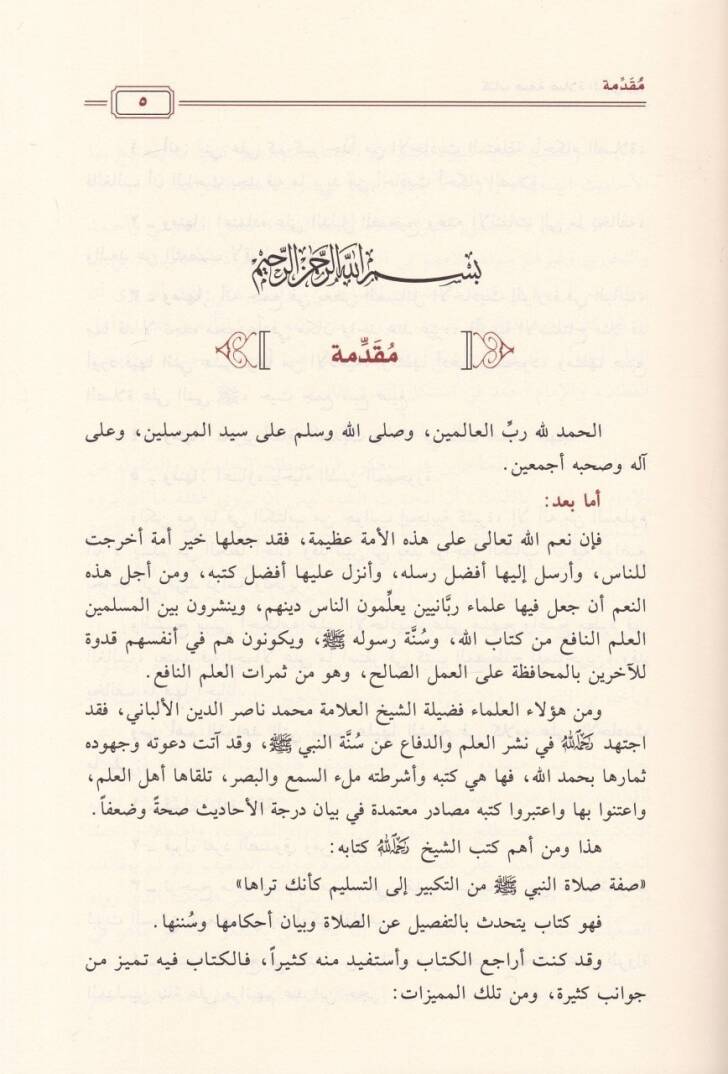 مُقَدِّمة
٥
بسم الله الرحمن الرحيم
مُقَدِّمة
الحمد لله ربِّ العالمين، وصلى الله وسلم على سيد المرسلين، وعلى
آله وصحبه أجمعين.
أما بعد:
فإن نعم الله تعالى على هذه الأمة عظيمة، فقد جعلها خير أمة أخرجت
للناس، وأرسل إليها أفضل رسله، وأنزل عليها أفضل كتبه، ومن أجل هذه
النعم أن جعل فيها علماء ربَّانيين يعلِّمون الناس دينهم، وينشرون بين المسلمين
العلم النافع من كتاب الله، وسُنَّة رسوله ﷺ، ويكونون هم في أنفسهم قدوة
للآخرين بالمحافظة على العمل الصالح، وهو من ثمرات العلم النافع.
ومن هؤلاء العلماء فضيلة الشيخ العلامة محمد ناصر الدين الألباني، فقد
اجتهد رَحِمَهُ اللهُ في نشر العلم والدفاع عن سُنَّة النبي ﷺ، وقد آتت دعوته وجهوده
ثمارها بحمد الله، فها هي كتبه وأشرطته ملء السمع والبصر، تلقاها أهل العلم،
واعتنوا بها واعتبروا كتبه مصادر معتمدة في بيان درجة الأحاديث صحةً وضعفاً.
هذا ومن أهم كتب الشيخ رَحِمَهُ اللهُ كتابه:
«صفة صلاة النبي ﷺ من التكبير إلى التسليم كأنك تراها»
فهو كتاب يتحدث بالتفصيل عن الصلاة وبيان أحكامها وسُننها.
وقد كنت أراجع الكتاب وأستفيد منه كثيراً، فالكتاب فيه تميز من
جوانب كثيرة، ومن تلك المميزات: